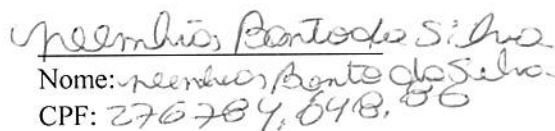 Neemias Bento da Silva
Nome: Neemias Bento da Silva
CPF: 276784,648,86